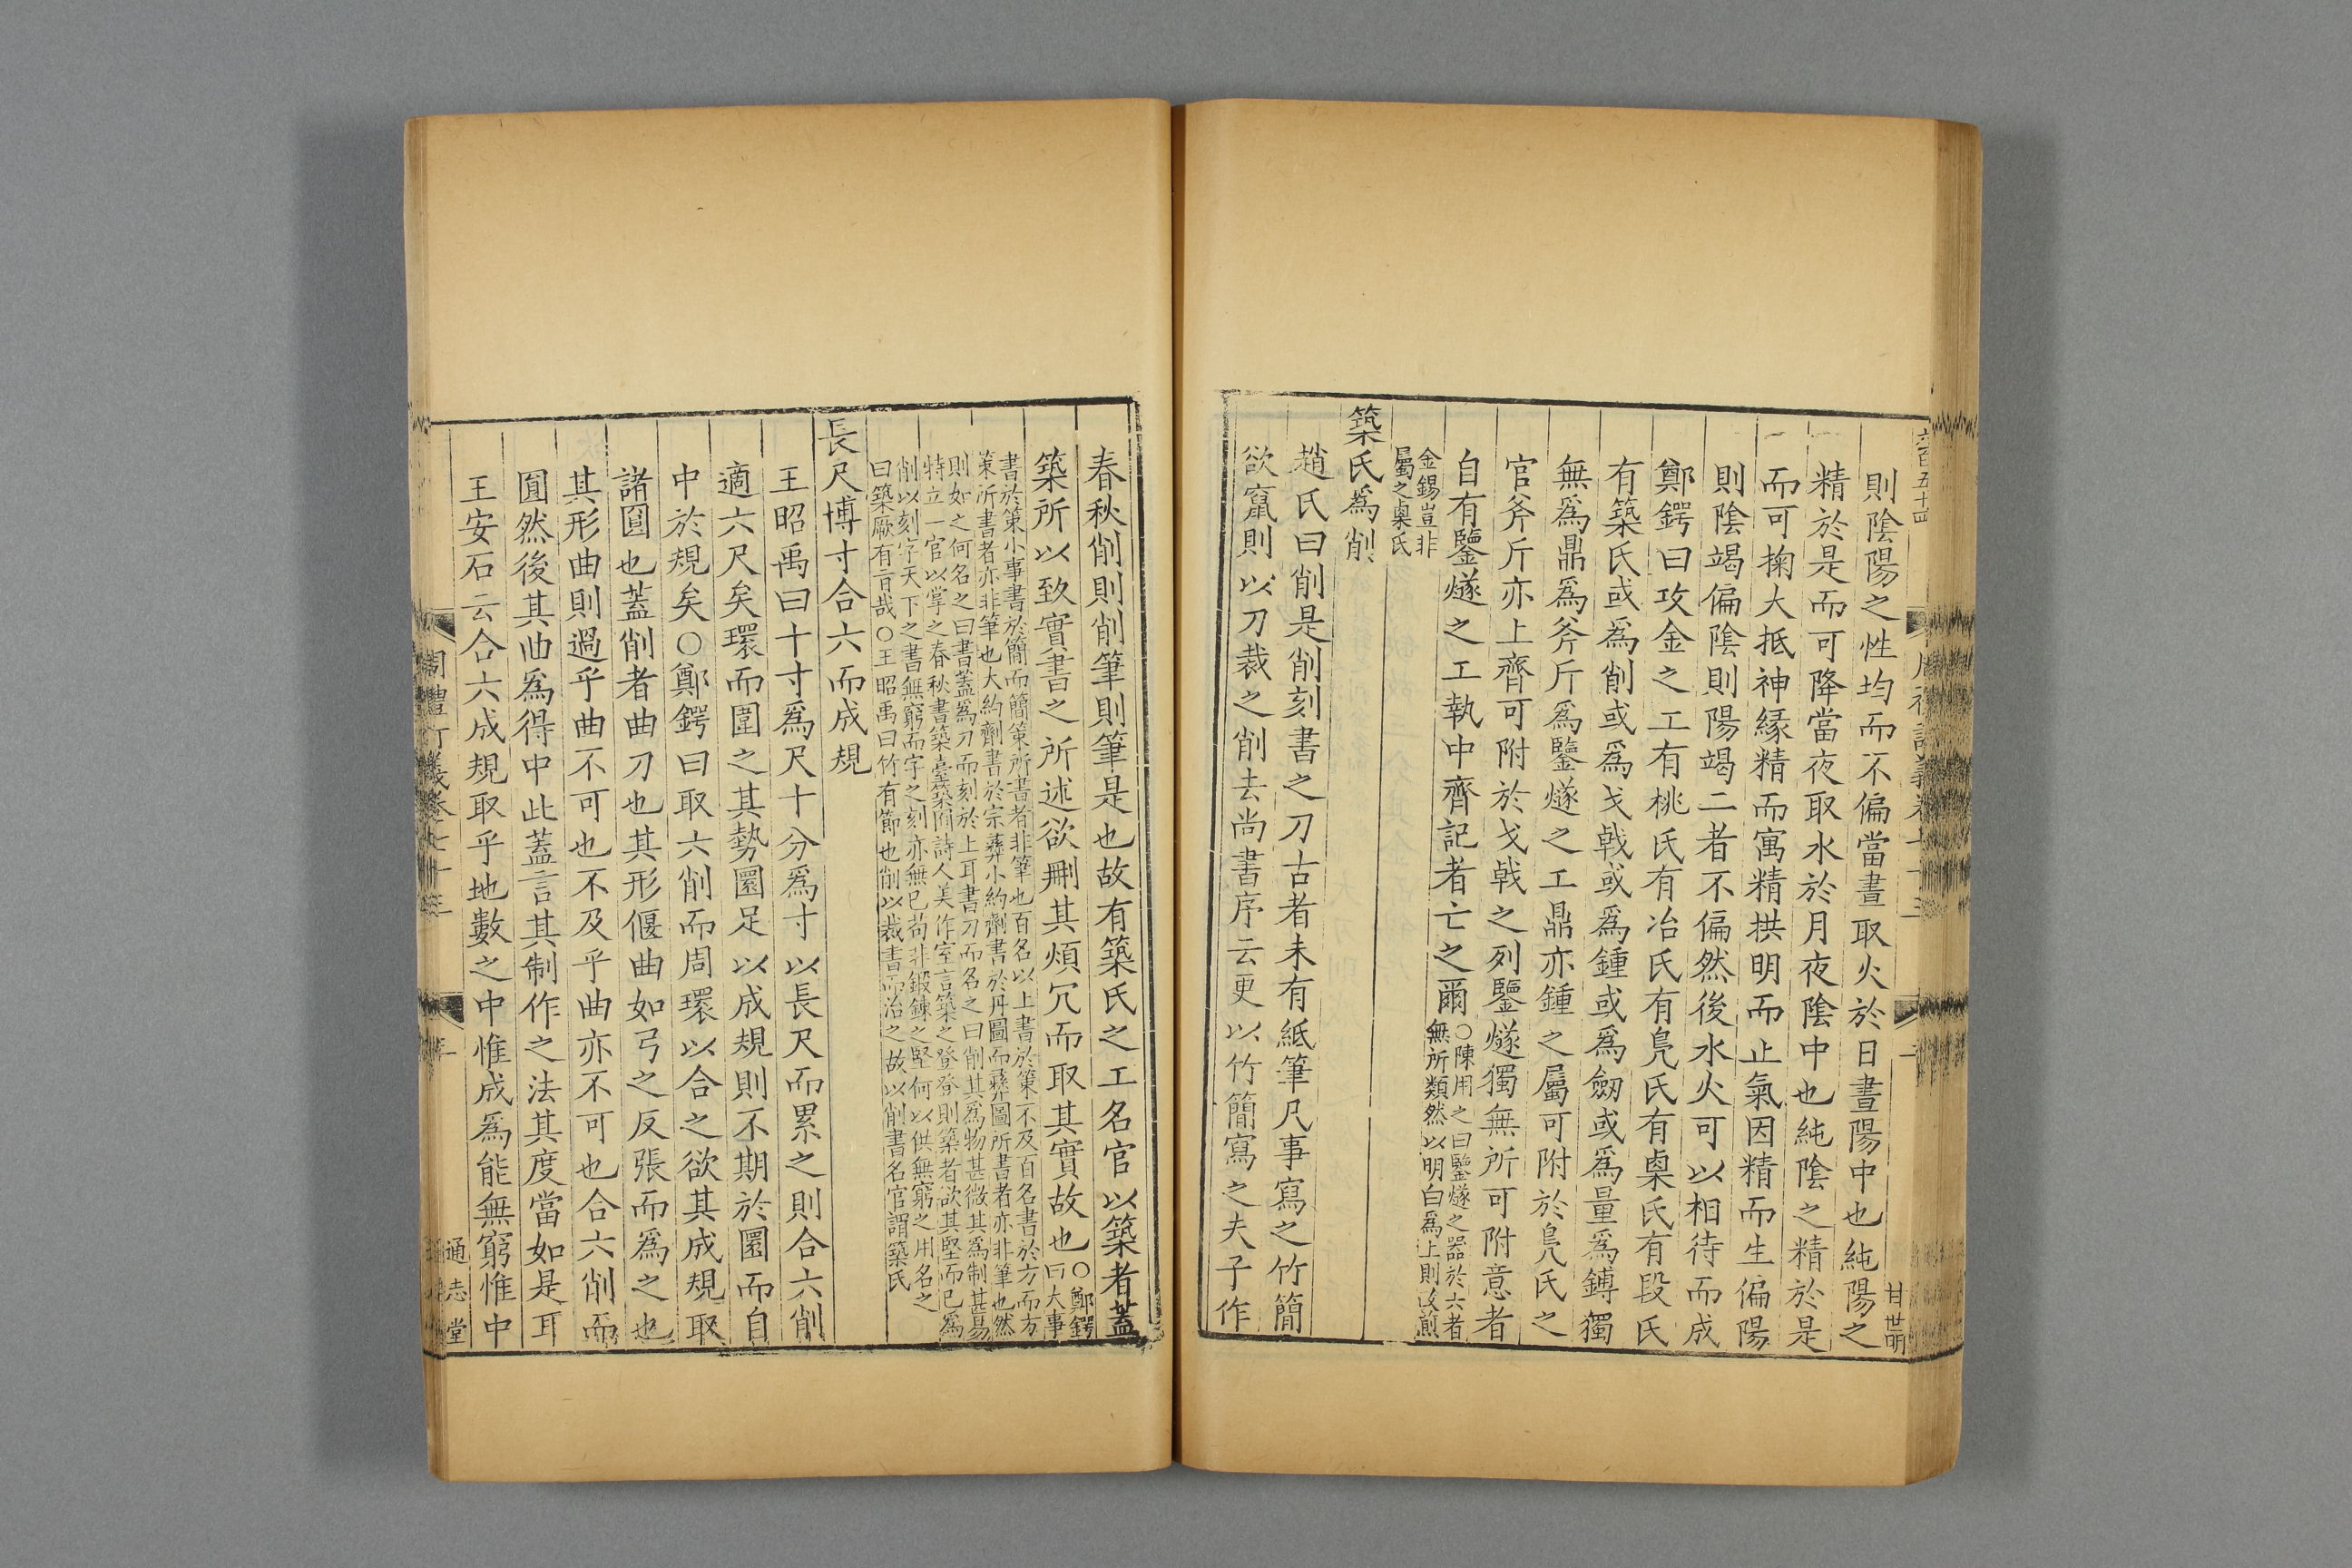 六百五十四
則陰陽之性均而不偏當晝取火於日晝陽中也純陽之
精於是而可降當夜取水於月夜陰中也純陰之精於是
而可掬大抵神緣精而寓精拱明而止氣因精而生偏陽
則陰竭偏陰則陽竭二者不偏然後水火可以相待而成
鄭鍔曰攻金之工有桃氏有冶氏有鳧氏有㮚氏有段氏
有築氏或爲削或爲戈戟或爲鍾或爲劒或爲量爲鎛獨
無爲鼎爲斧斤爲鑒燧之工鼎亦鍾之屬可附於鳧氏之
官斧斤亦上齊可附於戈戟之列鑒燧獨無所可附意者
自有鑒燧之工執中齊記者亡之爾○陳用之曰鑒燧之器於六者無所類然以明白爲上則改煎
金錫豈非屬之㮚氏
築氏爲削
趙氏曰削是削刻書之刀古者未有紙筆凡事寫之竹簡
欲竄則以刀裁之削去尚書序云更以竹簡寫之夫子作
甘世明
春秋削則削筆則筆是也故有築氏之工名官以築者蓋
築所以致實書之所述欲刪其煩冗而取其實故也○鄭鍔曰大事
書於策小事書於簡而簡策所書者非筆也百名以上書於策不及百名書於方而方
策所書者亦非筆也大約劑書於宗彝小約劑書於丹圖而彝圖所書者亦非筆也然
則如之何名之曰書蓋爲刀而刻於上耳書刀而名之曰削其爲物甚微其爲制甚易
特立一官以掌之春秋書築臺築郿詩人美作室言築之登登則築者欲其堅而已爲
削以刻字天下之書無窮而字之刻亦無已苟非鍛鍊之堅何以供無窮之用名之
曰築厥有旨哉○王昭禹曰竹有節也削以裁書而治之故以削書名官謂築氏
長尺博寸合六而成規
王昭禹曰十寸爲尺十分爲寸以長尺而累之則合六削
適六尺矣環而圍之其勢圜足以成規則不期於圜而自
中於規矣○鄭鍔曰取六削而周環以合之欲其成規取
諸圓也蓋削者曲刀也其形偃曲如弓之反張而爲之也
其形曲則過乎曲不可也不及乎曲亦不可也合六削而
圓然後其曲爲得中此蓋言其制作之法其度當如是耳
王安石云合六成規取乎地數之中惟成爲能無窮惟中
周禮訂義卷七十三
通志堂